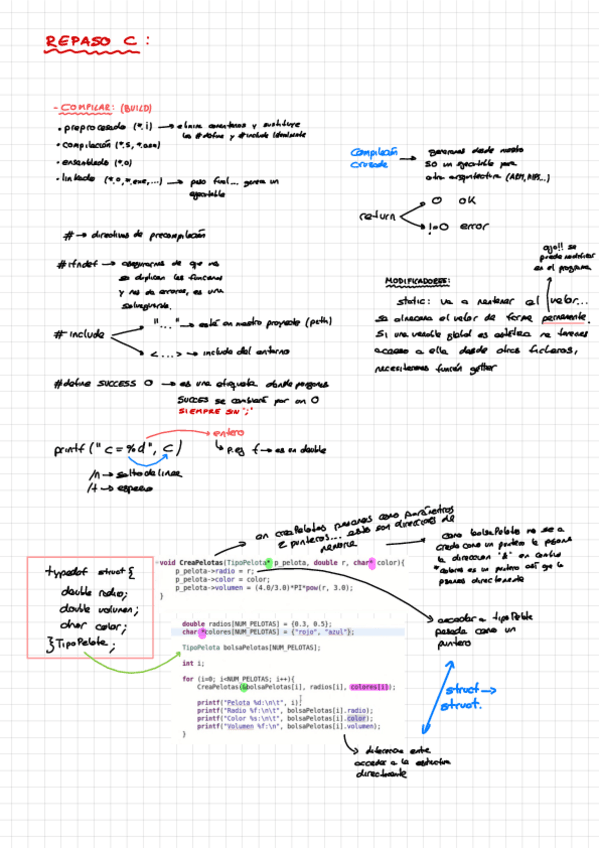 REPASO C:
- COMPILAR: (BUILD)
• preprocesado (*.i) → elimina comentarios y sustituye
los #define y #include literalmente
• compilación (*.s, *.asm)
• ensamblado (*.o)
• linkado (*.o, *.exe, ...) → paso final... genera un
ejecutable
Compilación
cruzada → generamos desde nuestro
SO un ejecutable para
otra arquitectura (ARM, MIPS...)
return
0 OK
!=0 error
# → directivas de precompilación
#ifndef → asegurarnos de que no
se duplican las funciones
y nos de errores, es una
salvaguarda.
# include
"..." → está en nuestro proyecto (path)
<...> → include del entorno
#define SUCCESS 0 → es una etiqueta donde pongamos
SUCCES se cambiará por un 0
SIEMPRE SIN ";"
ojo!! se
puede modificar
en el programa
MODIFICADORES:
static: va a mantener el valor...
se almacena el valor de forma permanente.
Si una variable global es estática no tenemos
acceso a ella desde otros ficheros,
necesitaremos función getter
printf("c=%d", c)
entero
p.ej f → es un double
/n → salto de línea
/t → espacio
en creaPelotas pasamos como parámetros
2 punteros... estos son direcciones de
memoria
como bolsaPelota no se a
creado como un puntero le pasamos
la dirección "&" en cambio
*colores es un puntero así que lo
pasamos directamente
typedef struct{
double radio;
double volumen;
char color;
}TipoPelota;
void CreaPelotas(TipoPelota* p_pelota, double r, char* color){
p_pelota->radio = r;
p_pelota->color = color;
p_pelota->volumen = (4.0/3.0)*PI*pow(r, 3.0);
}
acceder a tipoPelota
pasada como un
puntero
double radios[NUM_PELOTAS] = {0.3, 0.5};
char *colores[NUM_PELOTAS] = {"rojo", "azul"};
TipoPelota bolsaPelotas[NUM_PELOTAS];
int i;
for (i=0; i<NUM_PELOTAS; i++){
CreaPelotas(&bolsaPelotas[i], radios[i], colores[i]);
printf("Pelota %d:\n\t", i);
printf("Radio %f:\n\t", bolsaPelotas[i].radio);
printf("Color %s:\n\t", bolsaPelotas[i].color);
printf("Volumen %f:\n", bolsaPelotas[i].volumen);
}
struct →
struct.
diferencia entre
acceder a la estructura
directamente